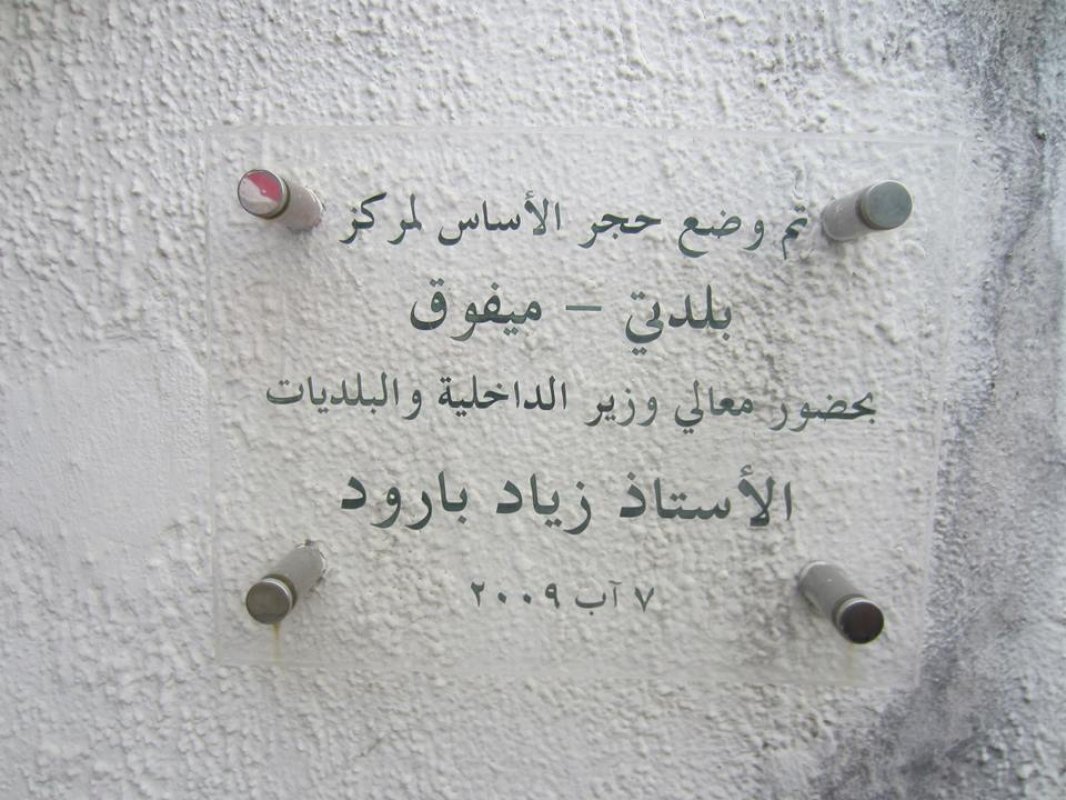 تم وضع حجر الأساس لمركز
بلدتي - ميفوق
بحضور معالي وزير الداخلية والبلديات
الأستاذ زياد بارود
٧ آب ٢٠٠٩